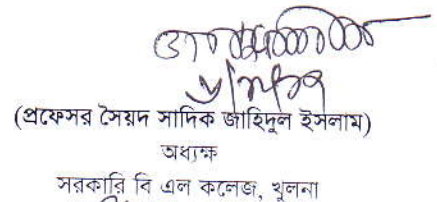 (প্রফেসর সৈয়দ সাদিক জাহিদুল ইসলাম)
অধ্যক্ষ
সরকারি বি এল কলেজ, খুলনা